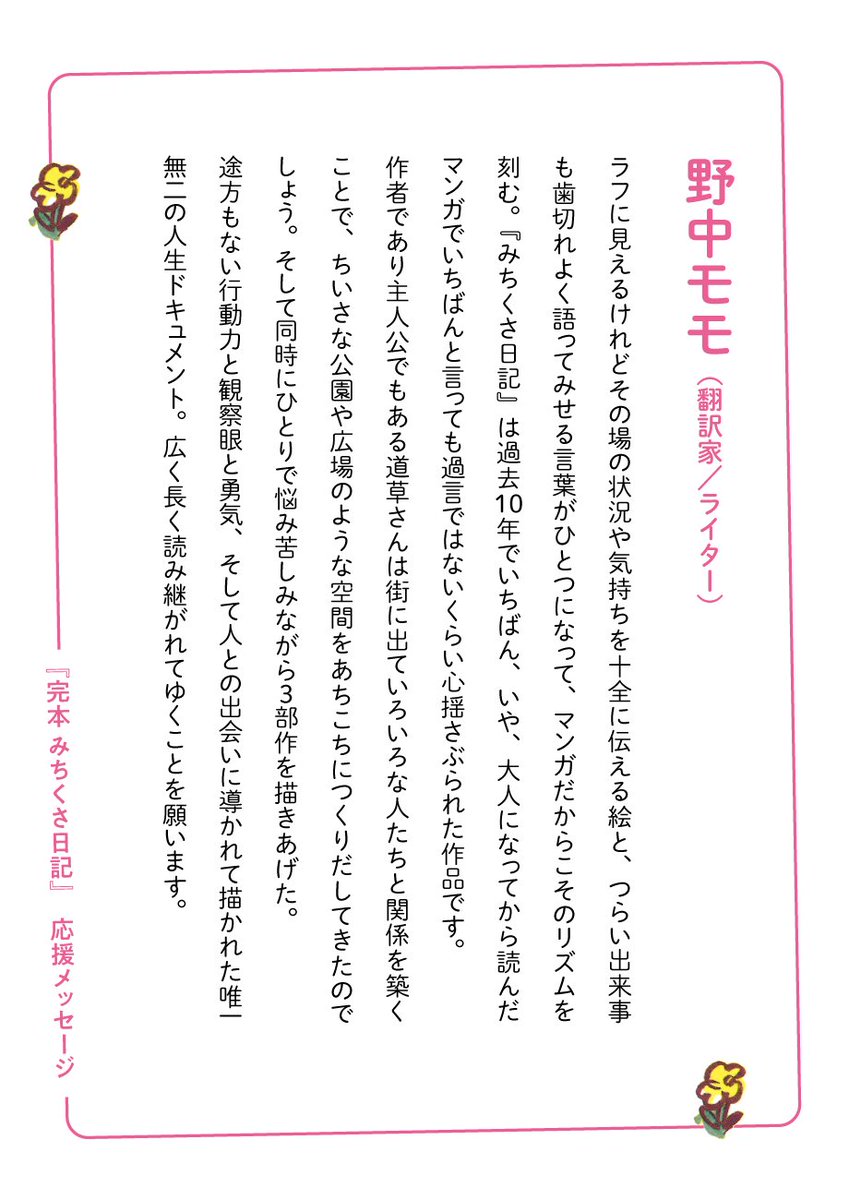 野中モモ（翻訳家／ライター）
ラフに見えるけれどその場の状況や気持ちを十全に伝える絵と、つらい出来事
も歯切れよく語ってみせる言葉がひとつになって、マンガだからこそのリズムを
刻む。『みちくさ日記』は過去10年でいちばん、いや、大人になってから読んだ
マンガでいちばんと言っても過言ではないくらい心揺さぶられた作品です。
作者であり主人公でもある道草さんは街に出ていろいろな人たちと関係を築く
ことで、ちいさな公園や広場のような空間をあちこちにつくりだしてきたので
しょう。そして同時にひとりで悩み苦しみながら3部作を描きあげた。
途方もない行動力と観察眼と勇気、そして人との出会いに導かれて描かれた唯一
無二の人生ドキュメント。広く長く読み継がれてゆくことを願います。
『完本 みちくさ日記』 応援メッセージ